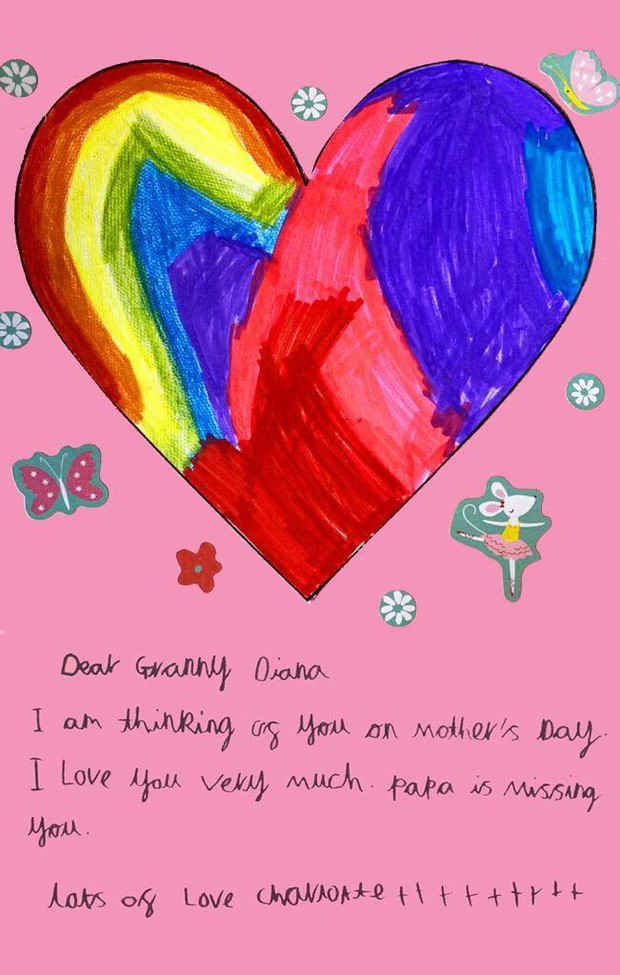 Dear Granny Diana
I am thinking of you on mother's Day.
I Love you very much. papa is missing
you.
lots of Love charlotte ++++++++++